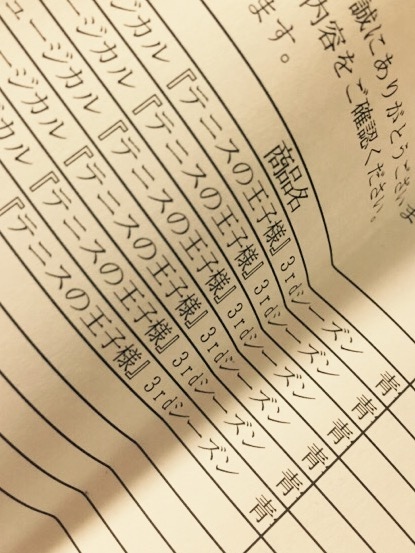 誠にありがとうございま
内容をご確認ください。
ます。
商品名
カル『テニスの王子様』3rdシーズン 青
ージカル『テニスの王子様』3rdシーズン 青
ュージカル『テニスの王子様』3rdシーズン 青
ジカル『テニスの王子様』3rdシーズン 青
カル『テニスの王子様』3rdシーズン 青
『テニスの王子様』3rdシーズン 青